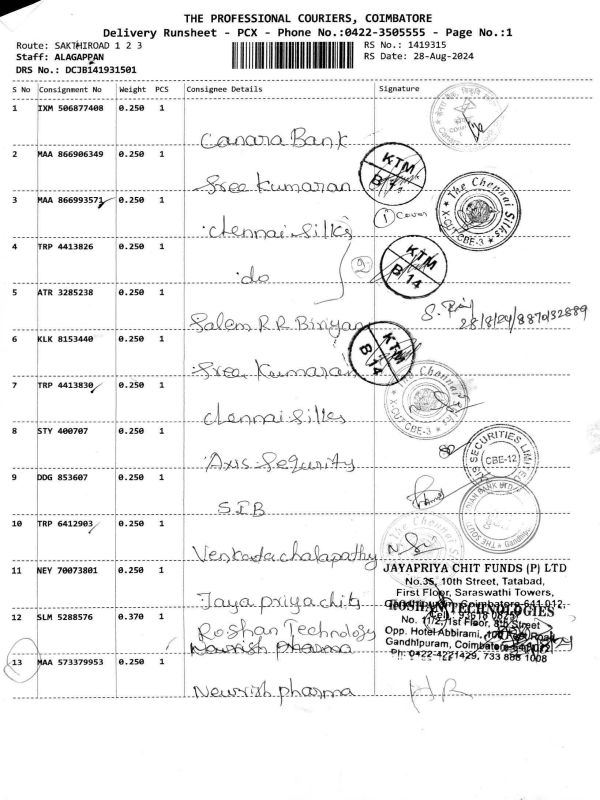 THE PROFESSIONAL COURIERS, COIMBATORE
Delivery Runsheet - PCX - Phone No.:0422-3505555 - Page No.:1
Route: SAKTHIROAD 1 2 3
RS No.: 1419315
Staff: ALAGAPPAN
RS Date: 28-Aug-2024
DRS No.: DCJB141931501
S No Consignment No Weight PCS Consignee Details Signature
1 IXM 506877408 0.250 1
Canara Bank
2 MAA 866906349 0.250 1
KTM
B 14
Sree Kumaran
3 MAA 866993571 0.250 1
1 Cover
The Chennai Silks
X-CUT CBE-3
chennai silks
4 TRP 4413826 0.250 1
KTM
B 14
2
do
5 ATR 3285238 0.250 1
28/8/24/8870132889
Salem R R Biriyani
6 KLK 8153440 0.250 1
KTM
B 14
Sree Kumaran
7 TRP 4413830 0.250 1
The Chennai
X-CUT CBE-3
chennai silks
8 STY 400707 0.250 1
SECURITIES LIMITED
CBE-12
Axis Sequrity
9 DDG 853607 0.250 1
S.I.B
10 TRP 6412903 0.250 1
The Chennai
Venkatachalapathy
11 NEY 70073801 0.250 1
JAYAPRIYA CHIT FUNDS (P) LTD
No.35, 10th Street, Tatabad,
First Floor, Saraswathi Towers,
Gandhipuram, Coimbatore-641 012.
Jayapriya chits
12 SLM 5288576 0.370 1
ROSHAN TECHNOLOGIES
No. 11/2, 1st Floor, 8th Street
Opp. Hotel Abbirami, 100 Feet Road
Gandhipuram, Coimbatore-641012
Ph: 0422-4221429, 733 888 1008
Roshan Technology
Nowrish pharma
13 MAA 573379953 0.250 1
Newrish pharma